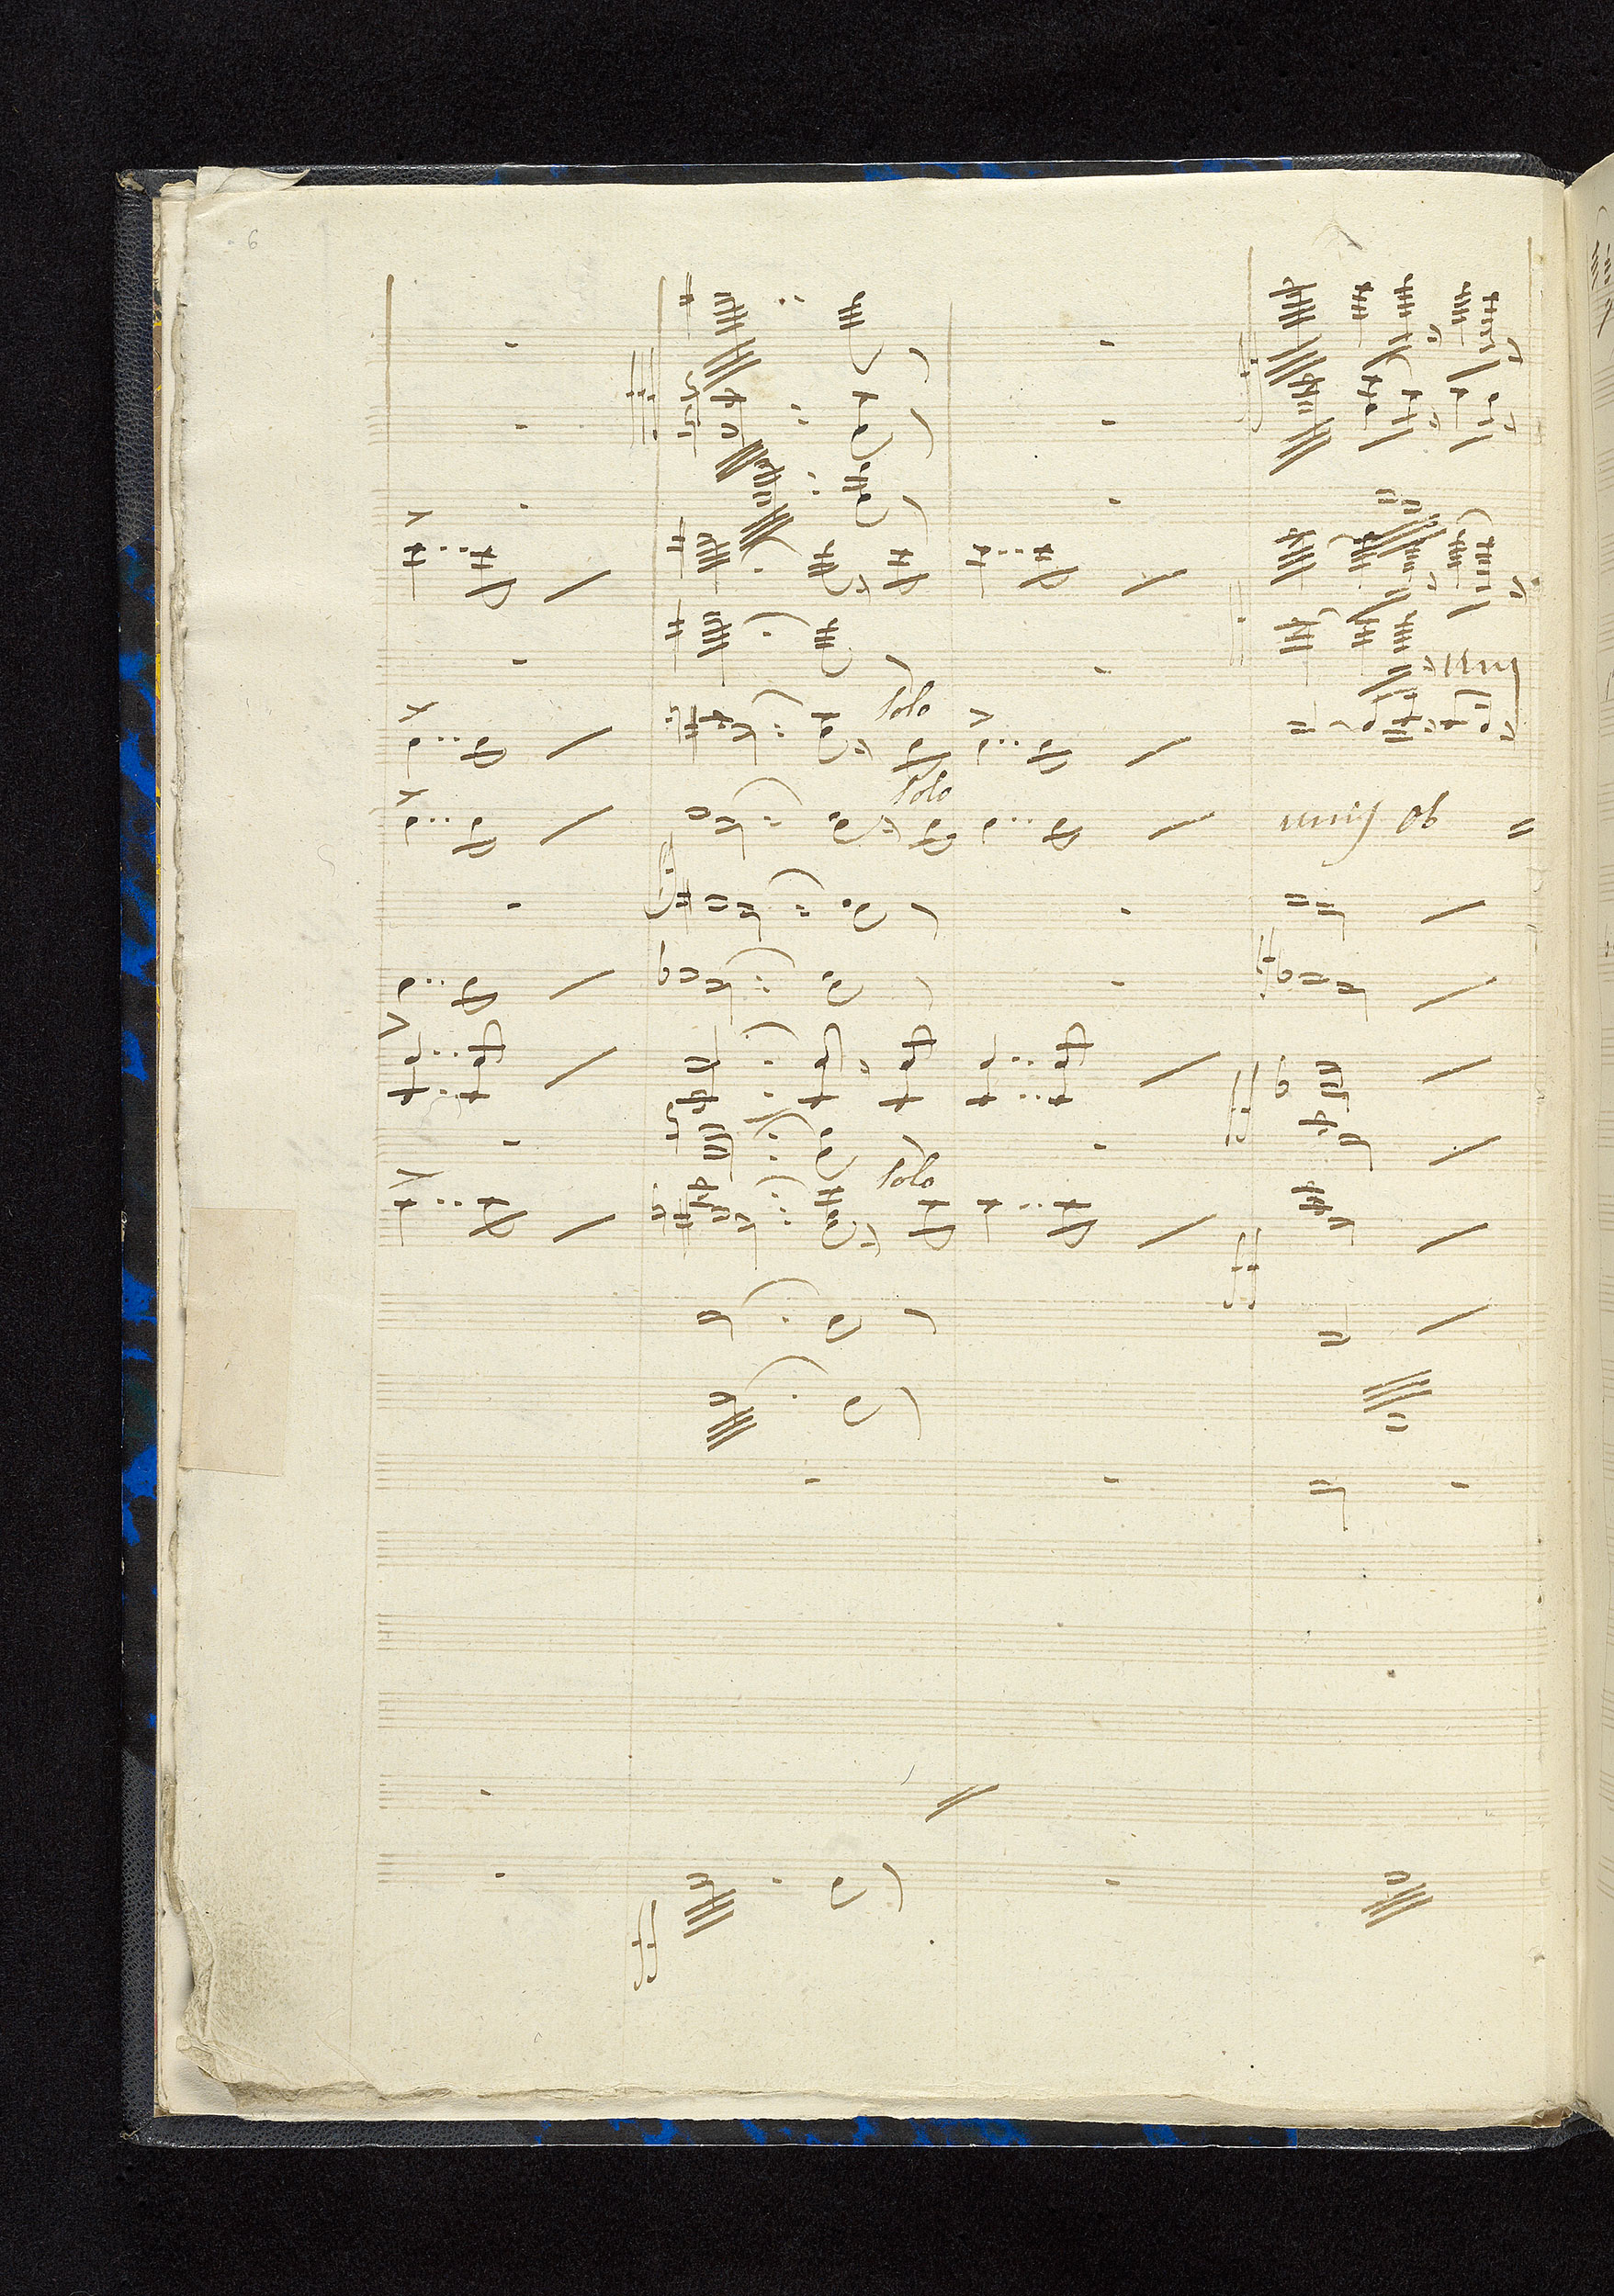 6
solo
solo
unis ob
solo